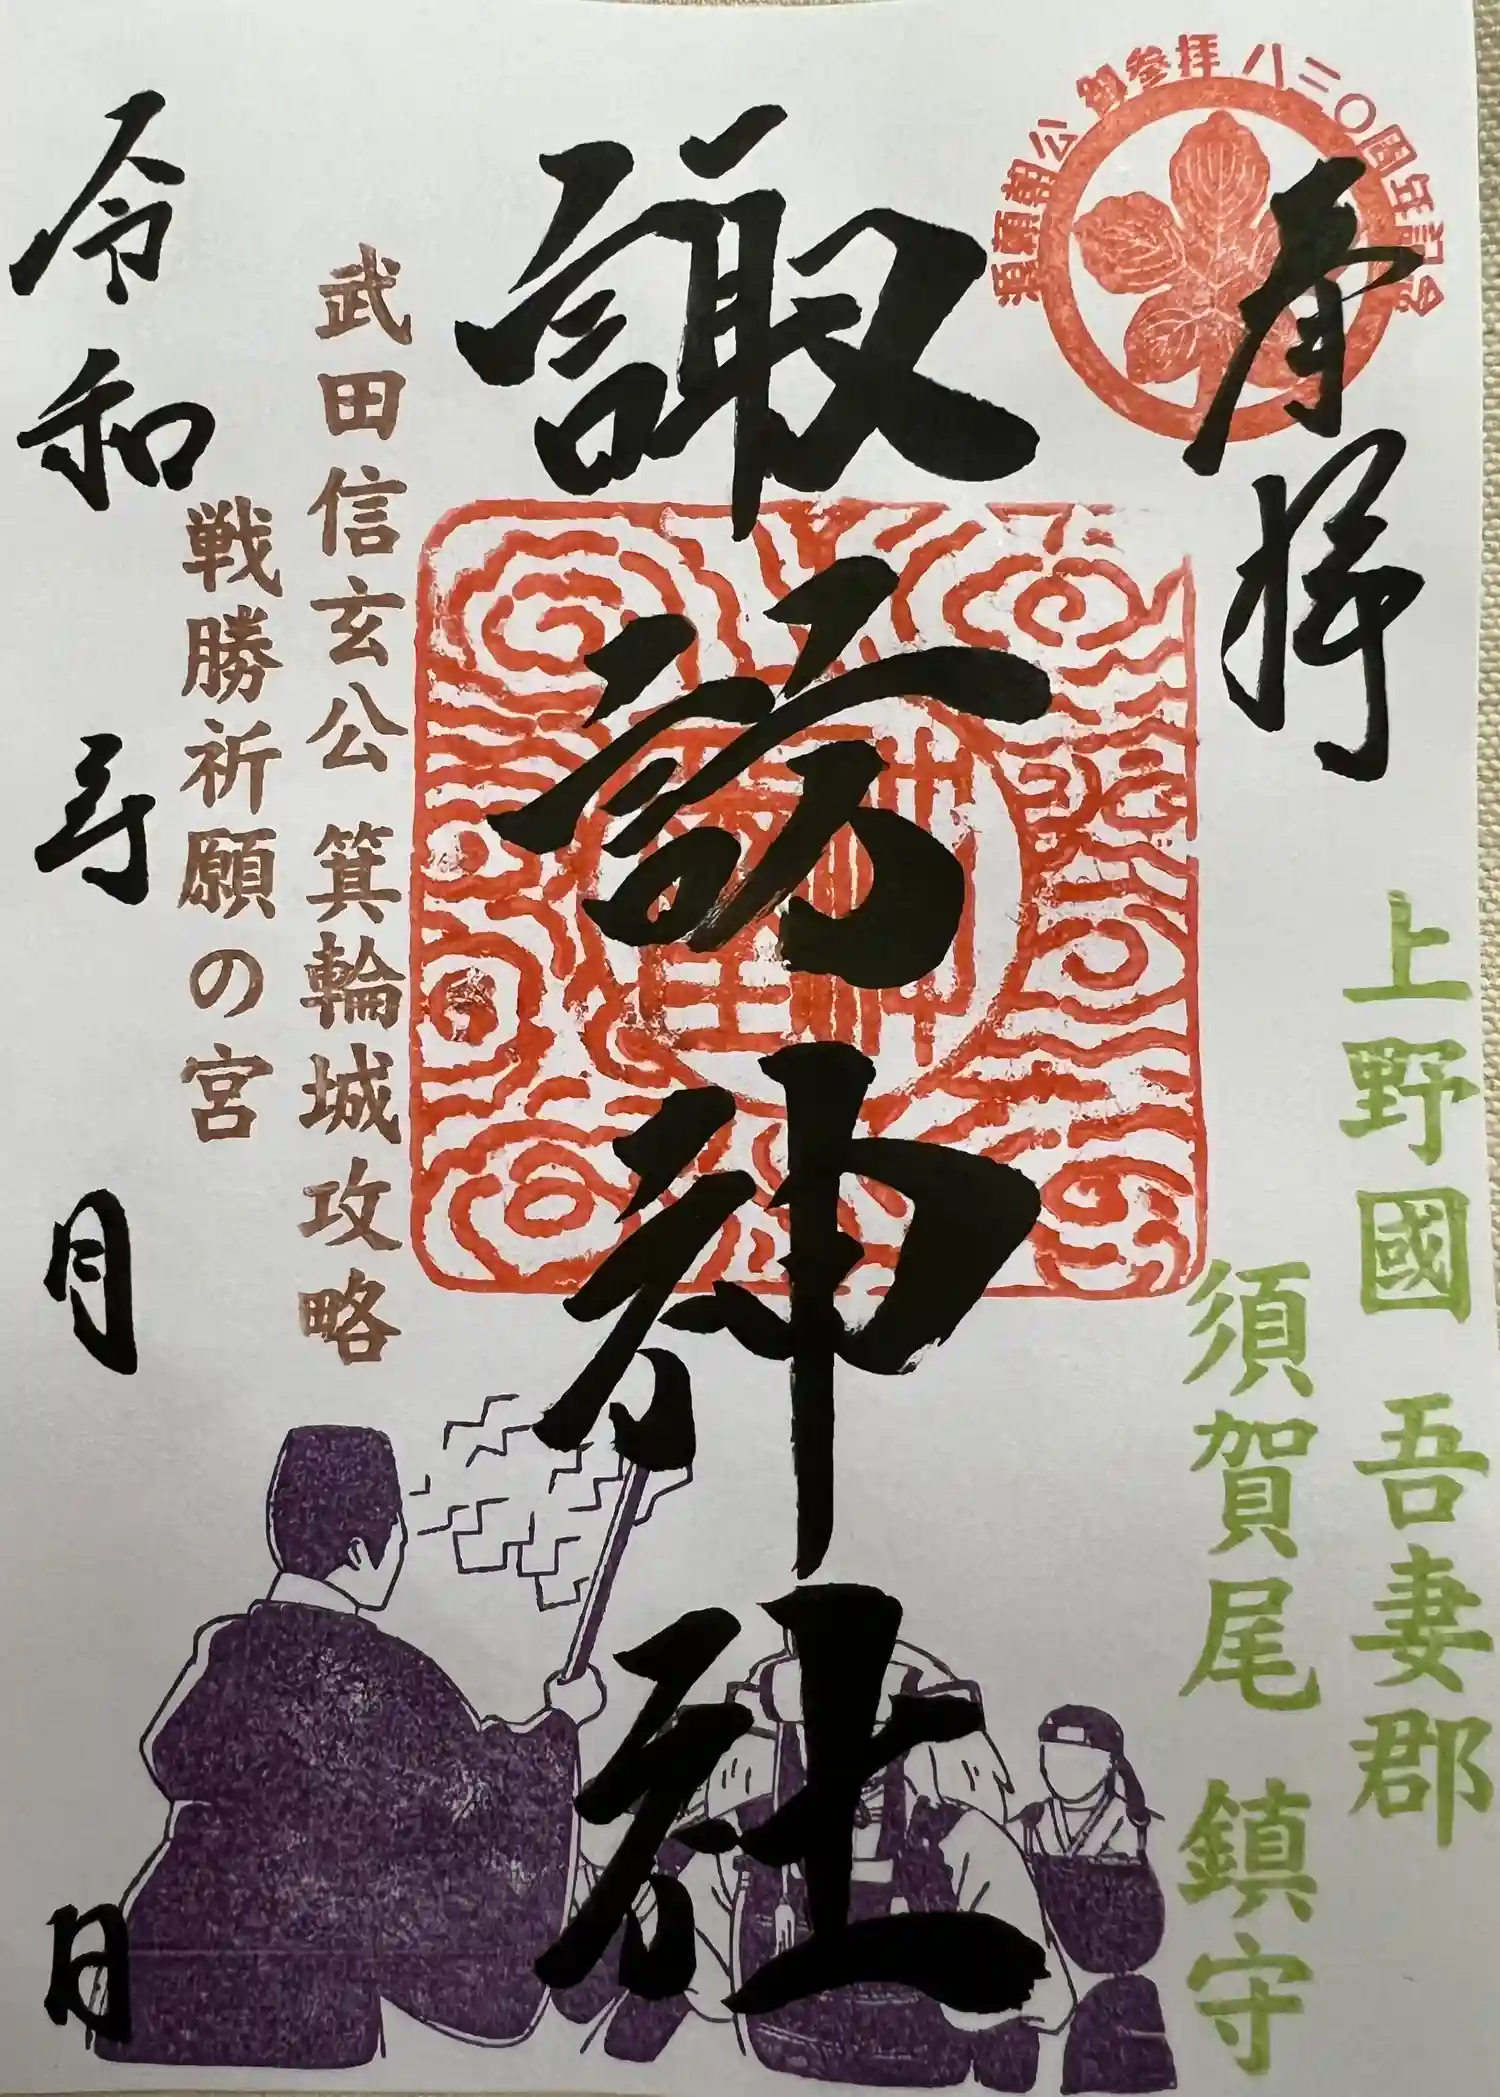 源頼朝公 御参拝 八三〇周年記念
奉拝
上野國 吾妻郡
須賀尾 鎮守
諏訪神社
武田信玄公 箕輪城攻略
戦勝祈願の宮
令和 年 月 日